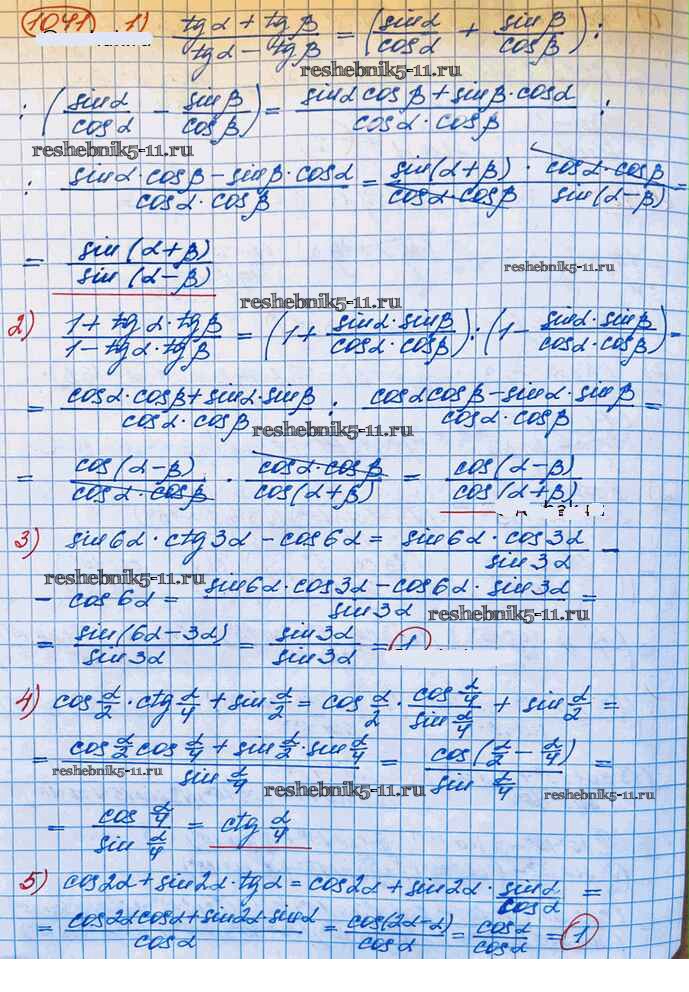 1041 1) (tgα + tgβ)/(tgα − tgβ) = (sinα/cosα + sinβ/cosβ) :
reshebnik5-11.ru
: (sinα/cosα − sinβ/cosβ) = (sinα cosβ + sinβ·cosα)/(cosα·cosβ) :
reshebnik5-11.ru
: (sinα·cosβ − sinβ·cosα)/(cosα·cosβ) = sin(α+β)/(cosα·cosβ) · (cosα·cosβ)/sin(α−β) =
= sin(α+β)/sin(α−β)
reshebnik5-11.ru
reshebnik5-11.ru
2) (1 + tgα·tgβ)/(1 − tgα·tgβ) = (1 + (sinα·sinβ)/(cosα·cosβ)) : (1 − (sinα·sinβ)/(cosα·cosβ)) =
= (cosα·cosβ + sinα·sinβ)/(cosα·cosβ) : (cosα cosβ − sinα·sinβ)/(cosα·cosβ) =
reshebnik5-11.ru
= cos(α−β)/(cosα·cosβ) · (cosα·cosβ)/cos(α+β) = cos(α−β)/cos(α+β)
3) sin6α·ctg3α − cos6α = (sin6α·cos3α)/sin3α −
reshebnik5-11.ru
− cos6α = (sin6α·cos3α − cos6α·sin3α)/sin3α =
reshebnik5-11.ru
= sin(6α−3α)/sin3α = sin3α/sin3α = 1
4) cos α/2 · ctg α/4 + sin α/2 = cos α/2 · (cos α/4)/(sin α/4) + sin α/2 =
= (cos α/2 cos α/4 + sin α/2 · sin α/4)/(sin α/4) = cos(α/2 − α/4)/(sin α/4) =
reshebnik5-11.ru
reshebnik5-11.ru
reshebnik5-11.ru
= (cos α/4)/(sin α/4) = ctg α/4
5) cos2α + sin2α·tgα = cos2α + sin2α · sinα/cosα =
= (cos2α cosα + sin2α·sinα)/cosα = cos(2α−α)/cosα = cosα/cosα = 1